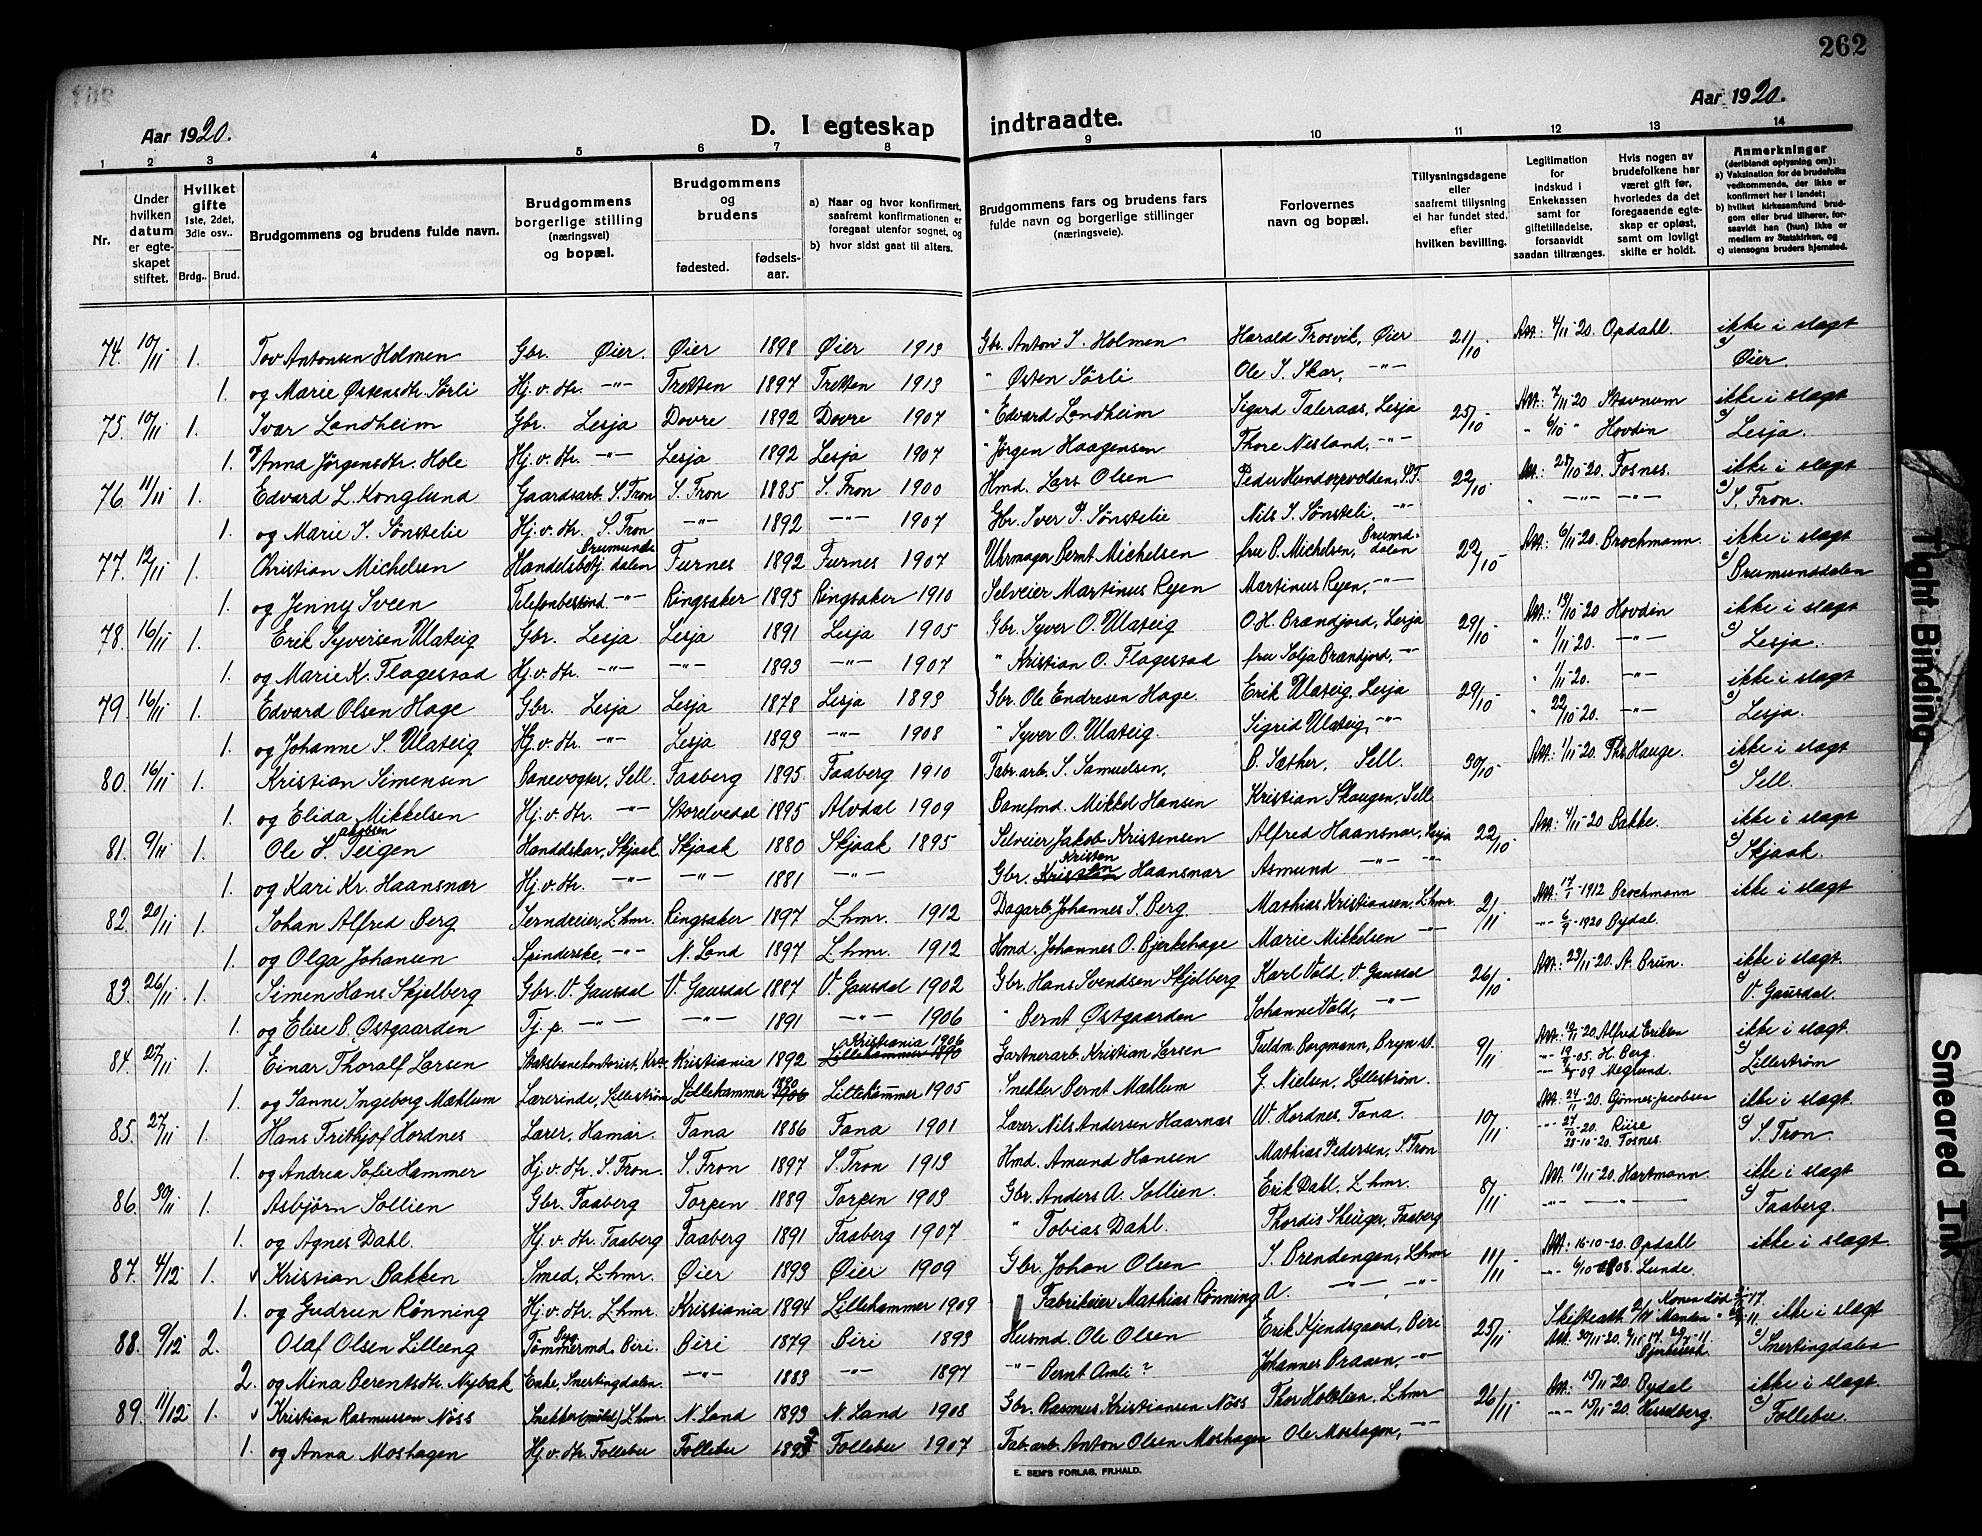 262
Aar 1920. D. I egteskap indtraadte. Aar 1920.
1 2 3 4 5 6 7 8 9 10 11 12 13 14
Nr.
Under hvilken datum er egteskapet stiftet.
Hvilket gifte 1ste, 2det, 3die osv..
Brdg.. Brud.
Brudgommens og brudens fulde navn.
Brudgommens borgerlige stilling (næringsvei) og bopæl.
Brudgommens og brudens
fødested. fødselsaar.
a) Naar og hvor konfirmert, saafremt konfirmationen er foregaat utenfor sognet, og
b) hvor sidst gaat til alters.
Brudgommens fars og brudens fars fulde navn og borgerlige stillinger (næringsveie).
Forlovernes navn og bopæl.
Tillysningsdagene eller saafremt tillysning ei har fundet sted. efter hvilken bevilling.
Legitimation for indskud i Enkekassen samt for giftetilladelse, forsaavidt saadan tiltrænges.
Hvis nogen av brudefolkene har været gift før, hvorledes da det foregaaende egteskap er opløst, samt om lovligt skifte er holdt.
Anmerkninger (deriblandt oplysning om):
a) Vaksination for de brudefolks vedkommende, der ikke er konfirmert her i landet;
b) hvilket kirkesamfund brudgom eller brud tilhører, forsaavidt han (hun) ikke er medlem av Statskirken, og
c) utensogns bruders hjemsted.
74. 10/11 1. Tov Antonsen Holmen Gbr. Øier. Øier 1898 Øier 1913 Gbr. Anton J. Holmen Harald Trosvik, Øier 21/10 Att: 4/11-20. Opdahl. ikke i slegt
1. og Marie Østensdtr. Sørli Hj. v. dtr. -"- Tretten 1897 Tretten 1913 " Østen Sørli Ole J. Skar, -"- c) Øier.
75. 10/11 1. Ivar Landheim Gbr. Lesja Dovre 1892 Dovre 1907 " Edvard Landheim Sigurd Taleraas, Lesja 25/10 Att: 7/11-20 Stavnum ikke i slegt
1. og Anna Jørgensdtr. Hole Hj. v. dtr. -"- Lesja 1892 Lesja 1907 " Jørgen Haagensen Thore Nesland, -"- " 6/10 " Hovdin c) Lesja.
76. 11/11 1. Edvard L. Konglund Gaardsarb. S. Fron S. Fron 1885 S. Fron 1900 Hmd. Lars Olsen Peder Hundorpvolden, S.F. 22/10 Att: 28/10-20. Fosnes. ikke i slegt
1. og Marie I. Sønstelie Hj. v. dtr. S. Fron -"- 1892 -"- 1907 Gbr. Iver P. Sønstelie Nils I. Sønsteli, -"- " -"- -"- c) S. Fron.
77. 12/11 1. Christian Michelsen Handelsbetj. Brumunddalen Furnes 1892 Furnes 1907 Uhrmager Bernt Michelsen fru B. Michelsen, Brumunddalen 22/10 Att: 6/11-20. Brochmann. ikke i slegt
1. og Jenny Sveen Telefonbestind. -"- Ringsaker 1895 Ringsaker 1910 Selveier Martinus Ryen Martinus Ryen, -"- c) Brumunddalen
78. 16/11 1. Erik Syversen Ulateig Gbr. Lesja Lesja 1891 Lesja 1905 Gbr. Syver O. Ulateig O. H. Brændjord, Lesja 29/10 Att: 19/10-20 Hovdin ikke i slegt
1. og Marie K. Flagestad Hj. v. dtr. -"- -"- 1893 -"- 1907 " Kristian O. Flagestad fru Solja Brændjord, -"- " 1/11-20. -"- c) Lesja.
79. 16/11 1. Edvard Olsen Hage Gbr. Lesja Lesja 1878 Lesja 1893 Gbr. Ole Endresen Hage. Erik Ulateig, Lesja 29/10 " 1/11-20. -"- ikke i slegt
1. og Johanne S. Ulateig Hj. v. dtr. -"- Lesja 1893 -"- 1908 " Syver O. Ulateig. Sigrid Ulateig, -"- " 22/10-20. -"- c) Lesja.
80. 16/11 1. Kristian Simensen Banevogter, Sell. Faaberg 1895 Faaberg 1910 Fabr. arb. S. Samuelsen, B. Sæther, Sell. 30/10 Att: 1/11-20. Ths Hauge. ikke i slegt
1. og Elida Mikkelsen Hj. v. dtr. -"- Storelvedal 1895 Alvdal 1909 Banefmd. Mikkel Hansen Kristian Skaugen, Sell c) Sell.
81. 9/11 1. Ole Jakobsen Teigen Handelskar, Skjaak Skjaak 1880 Skjaak 1895 Selveier Jakob Kristensen Alfred Haansnar, Lesja 22/10 Att: 4/11-20 Bakke. ikke i slegt
1. og Kari Kr. Haansnær Hj. v. dtr. -"- -"- 1881 -"- Gbr. Kristen Haansnar Asmund -"- -"- c) Skjaak.
82. 20/11 1. Johan Alfred Berg Jerndreier, Lhmr. Ringsaker 1897 Lhmr. 1912 Dagarb. Johannes S. Berg. Mathias Kristiansen, Lhmr. 2/11 Att: 17/1-1912 Brochmann ikke i slegt
1. og Olga Johansen Spinderske, -"- N. Land 1897 Lhmr. 1912 Hmd. Johannes O. Bjerkehage Marie Mikkelsen -"- -"- 6/9-1920 Bydal.
83. 26/11 1. Simen Hans Skjelberg Gbr. V. Gausdal V. Gausdal 1887 V. Gausdal 1902 Gbr. Hans Svendsen Skjølberg Karl Vold, V. Gausdal 26/10 Att: 23/11-20. A. Brun. ikke i slegt.
1. og Elise B. Østgaarden Tj. p. -"- -"- 1891 -"- 1906 " Bernt Østgaarden Johanne Vold, -"- c) V. Gausdal.
84. 27/11 1. Einar Thoralf Larsen Statsbanekontorist, Kra. Kristiania 1892 Kristiania 1906 Gartnerarb. Kristian Larsen Fuldm. Bergmann, Bryn st. 9/11 Alfred Eriksen ikke i slegt.
1. og Janne Ingeborg Mæhlum Lærerinde, Lillestrøm Lillehammer 1890 Lillehammer 1905 Snekker Bernt Mæhlum G. Nielsen, Lillestrøm. -05. H. Berg. -09 Neglund. c) Lillestrøm
85. 27/11 1. Hans Frithjof Hordnes Lærer, Hamar. Fana 1886 Fana 1901 Lærer Nils Andersen Haarnas W. Hordnes, Fana. 10/11 Att: 24/11-20. Gjønnes-Jacobsen ikke i slegt.
1. og Andrea Sofie Hammer Hj. v. dtr. S. Fron. S. Fron 1897 S. Fron 1913 Hmd. Amund Hansen Mathias Pedersen, S. Fron -"- 27/10-20. Riise 28-10-20. Fosnes. c) S. Fron.
86. 30/11 1. Asbjørn Sollien Gbr. Faaberg Torpen 1889 Torpen 1903 Gbr. Anders A. Sollien. Erik Dahl, Lhmr. 8/11 Att: 19/11-20. Hartmann. ikke i slegt
1. og Agnes Dahl. Hj. v. dtr. Faaberg Faaberg 1891 Faaberg 1907 " Tobias Dahl. Thordis Skuiger, Faaberg -"- -"- c) Faaberg.
87. 4/12 1. Kristian Bakken Smed, Lhmr. Øier 1893 Øier 1909 Gbr. Johan Olsen S. Brendengen, Lhmr 11/11 Att: 16-10-20. Opdahl ikke i slegt.
1. og Gudrun Rønning Hj. v. dtr. Lhmr. Kristiania 1894 Lillehammer 1909 Fabrikeier Mathias Rønning A. -"- -"- -"- 6/10 08. Lunde.
88. 9/12 2. Olaf Olsen Lilleeng Byg Tømmermd. Biri. Biri 1879 Biri 1893 Husmd. Ole Olsen Erik Kjendsgaard, Biri 25/11 Skifteatt. Konen død Manden ikke i slegt
2. og Mina Berentsdtr. Nybak Enke, Snertingdalen. -"- 1883 -"- 1897 -"- Bernt Amli? Johannes Braaen, -"- Att: 30/11-20. c) Snertingdalen
89. 11/12 1. Kristian Rasmussen Nöss Snekker (möbl) Lhmr. N. Land 1893 N. Land 1908 Gbr. Rasmus Kristiansen Nöss Thor Holstien, Lhmr 26/11 Att: 15/11-20. Bydal ikke i slegt
1. og Anna Moshagen Hj. v. dtr. Follebu Follebu Follebu 1907 Fab. arb. Anton Olsen Moshagen Ole Moshagen, -"- -"- 15/11-20. Hesselberg. c) Follebu.
E. SEM'S FORLAG, FR.HALD.
Tight Binding
Smeared Ink